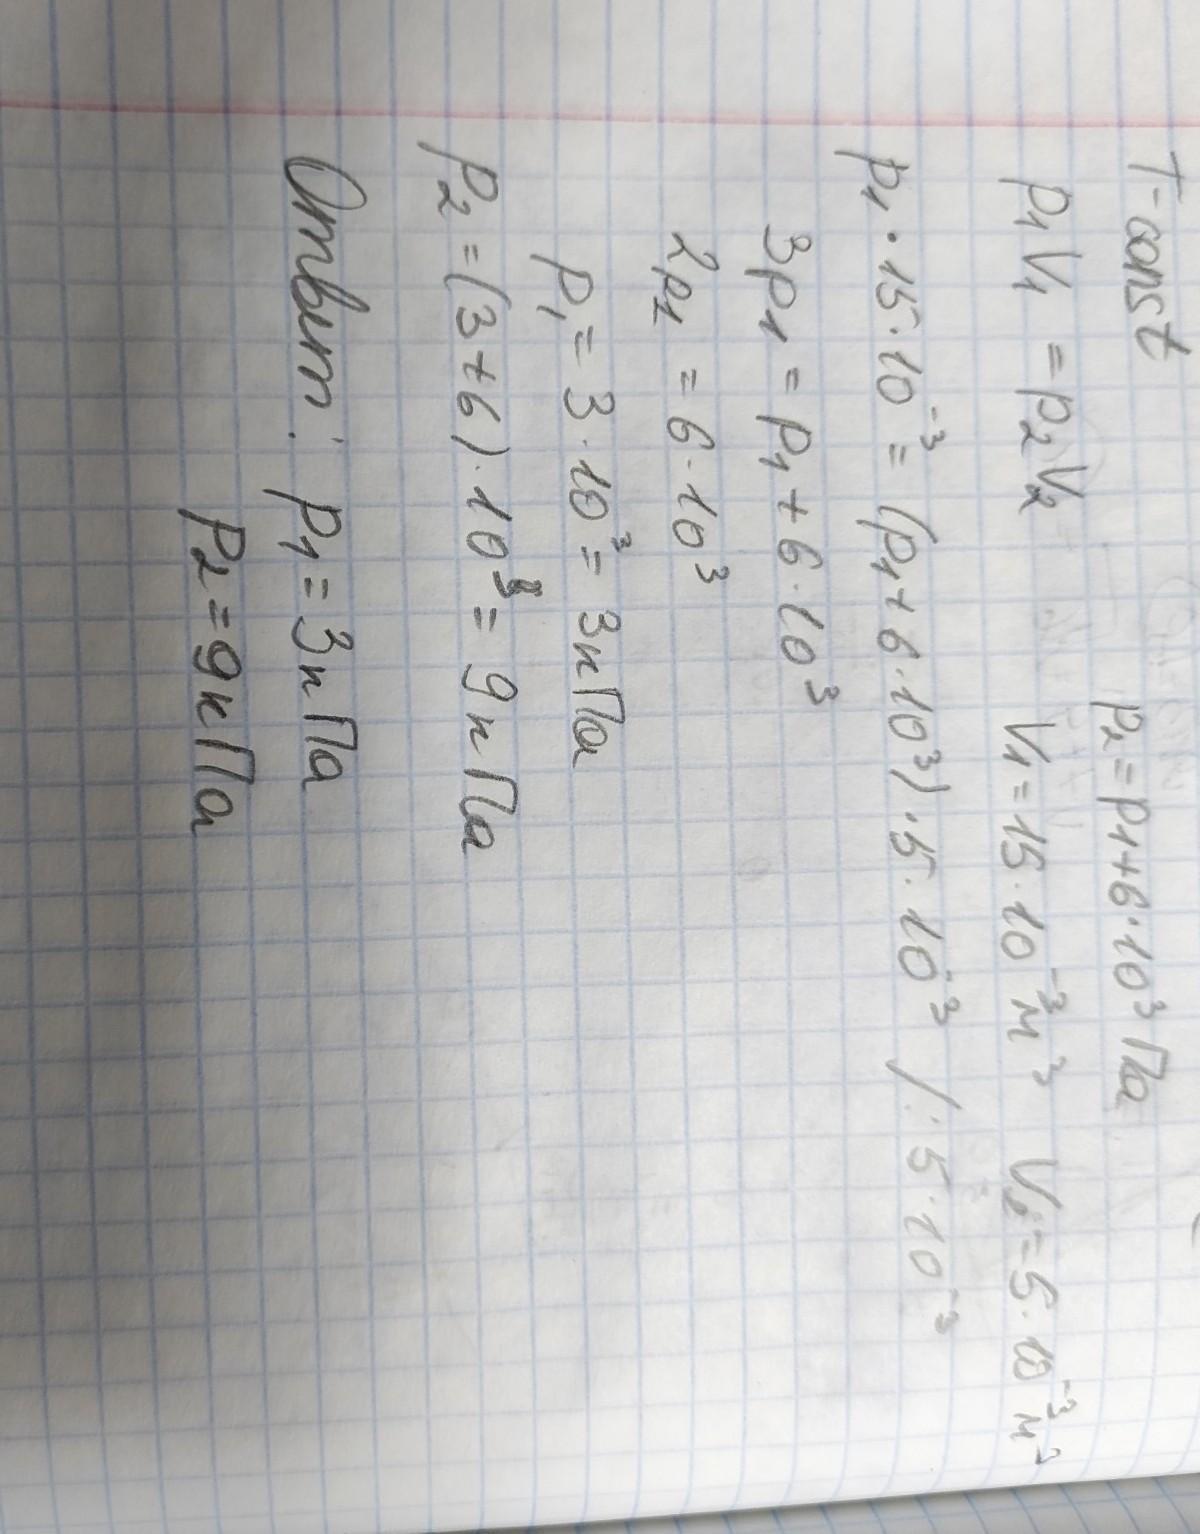 T-const p₂=p₁+6·10³ Па
p₁V₁=p₂V₂ V₁=15·10⁻³м³ V₂=5·10⁻³м³
p₁·15·10⁻³=(p₁+6·10³)·5·10⁻³ /:5·10⁻³
3p₁=p₁+6·10³
2p₁=6·10³
p₁=3·10³=3кПа
p₂=(3+6)·10³=9кПа
Ответ: p₁=3кПа
p₂=9кПа